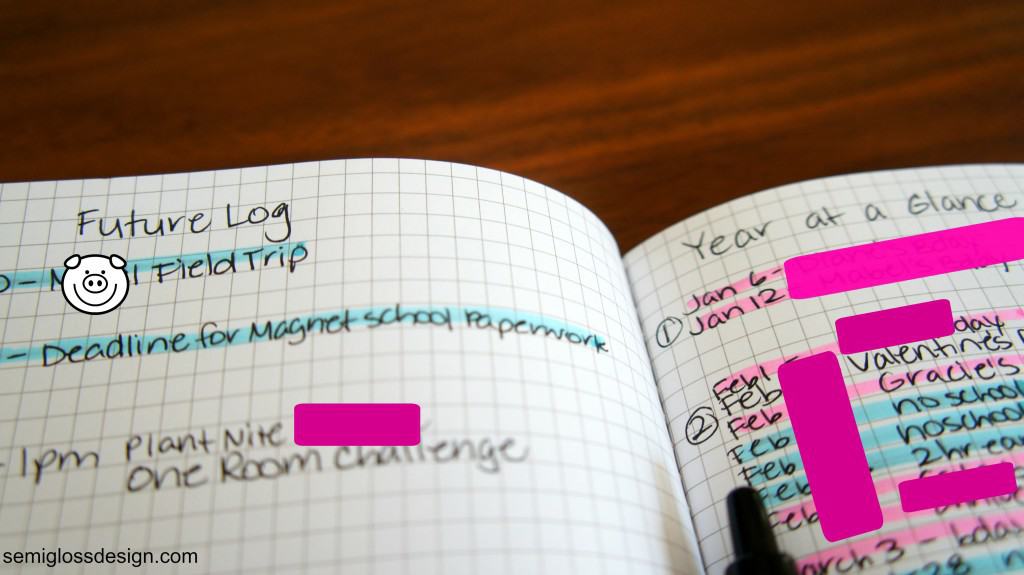 Future Log
Field Trip
- Deadline for Magnet school Paperwork
1pm Plant Nite
One Room Challenge
Year at a Glance
Jan 6 -
① Jan 12
day
Feb 1 - Valentines
Feb Gracie's
② Feb no school
Feb noschool
Feb 2hr
Feb
Feb
arch 3 - bday
28
semiglossdesign.com